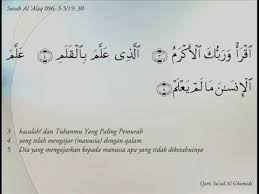 Surah Al 'Alaq 096: 3-5/19; 30
ٱقْرَأْ وَرَبُّكَ ٱلْأَكْرَمُ ٣ ٱلَّذِى عَلَّمَ بِٱلْقَلَمِ ٤ عَلَّمَ
ٱلْإِنسَٰنَ مَا لَمْ يَعْلَمْ ٥
3 bacalah! dan Tuhanmu Yang Paling Pemurah
4 yang telah mengajar (manusia) dengan qalam
5 Dia yang mengajarkan kepada manusia apa yang tidak diketahuinya
Qari: Sa'ad Al Ghamdi